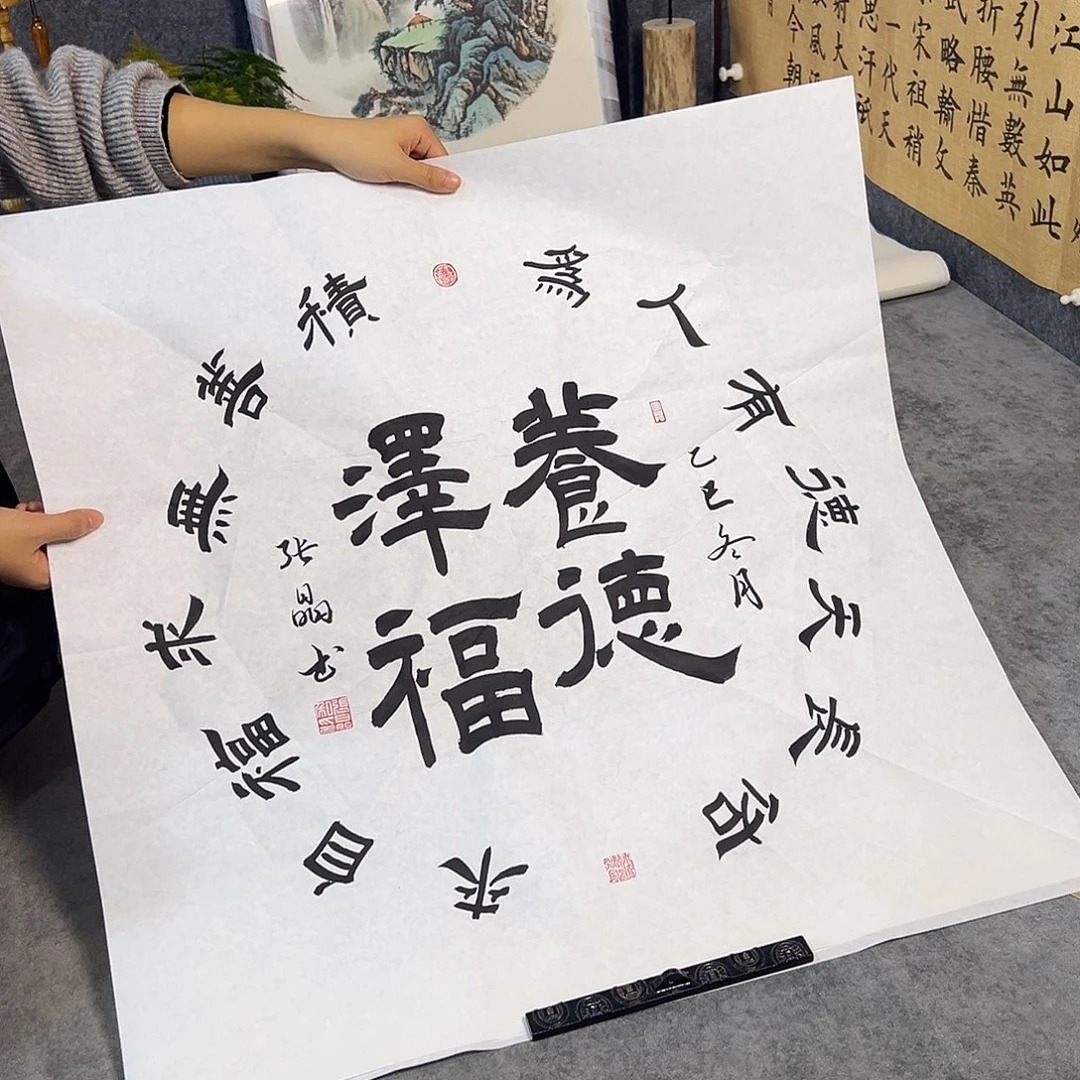 養德
澤福
為人有德天長佑
積善無求福自來
乙巳冬月
张晶书
江山如此
引無數英
折腰惜秦
武略輸文
宋祖稍
一代天
思汗祇
射大
風
今朝
月